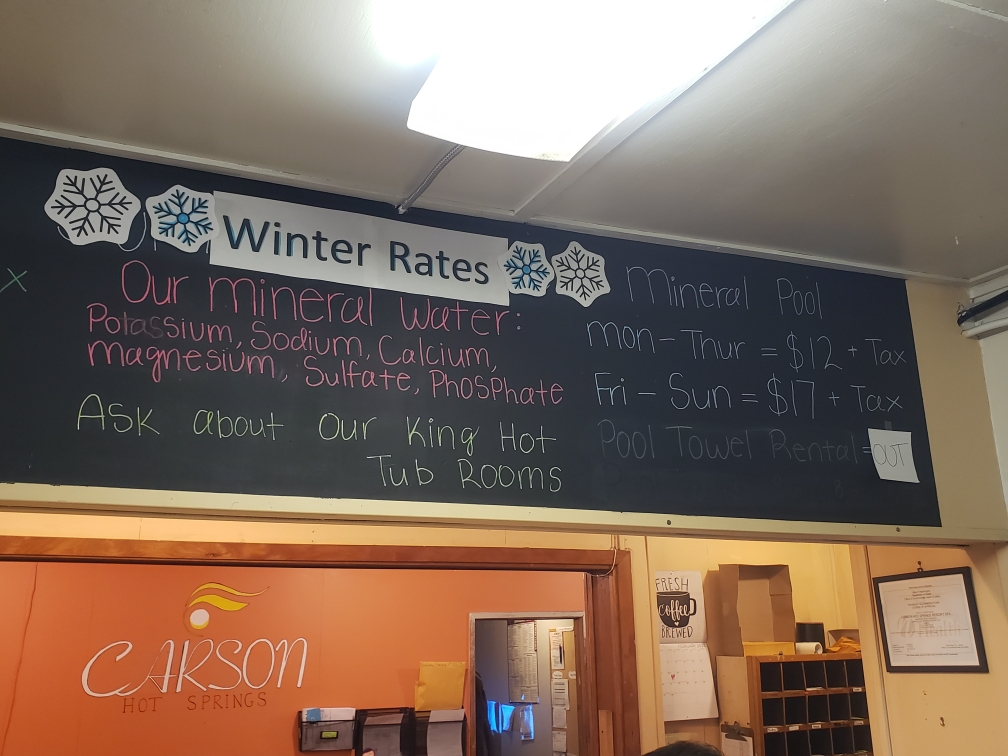 Winter Rates
Our mineral water:
Potassium, Sodium, Calcium,
magnesium, Sulfate, Phosphate
Ask about Our King Hot
Tub Rooms
Mineral Pool
Mon - Thur = $12 + Tax
Fri - Sun = $17 + Tax
Pool Towel Rental = OUT
X
CARSON
HOT SPRINGS
FRESH
coffee
BREWED